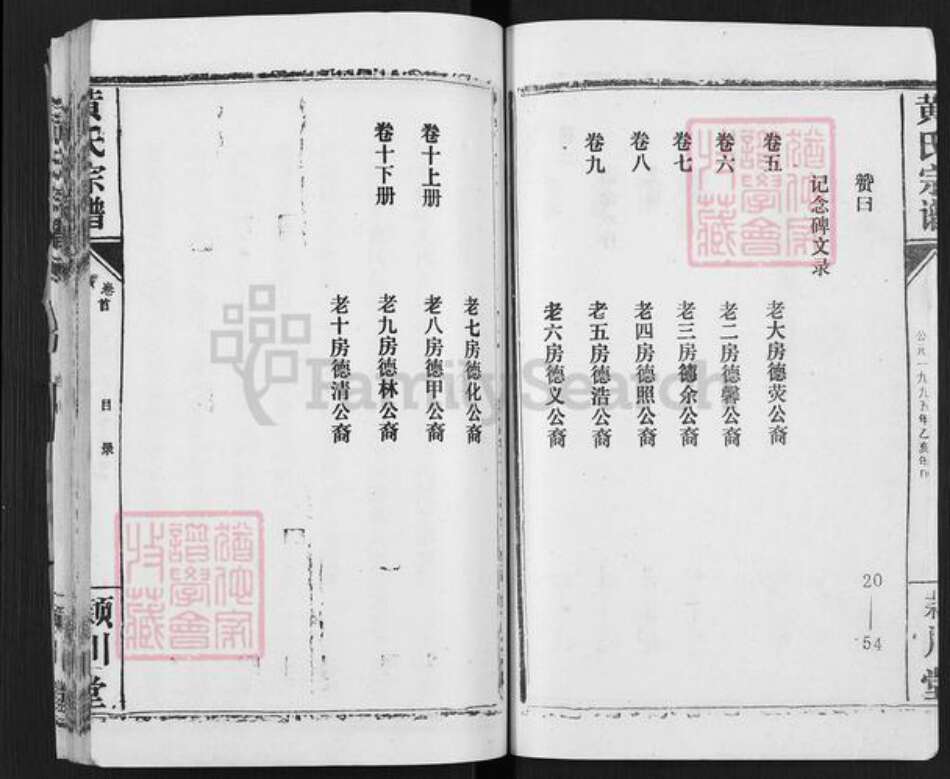 黄氏宗谱
公元一九九五年乙亥年印
颍川堂
赞曰
20—54
记念碑文录
卷五 老大房德荧公裔
卷六 老二房德馨公裔
卷七 老三房德余公裔
卷八 老四房德照公裔
卷九 老五房德浩公裔
老六房德义公裔
老七房德化公裔
卷十上册 老八房德甲公裔
卷十下册 老九房德林公裔
老十房德清公裔
黄氏宗谱
卷首
目录
颍川堂
FamilySearch